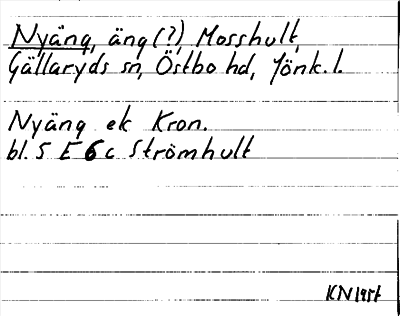 Nyäng, äng (?), Mosshult,
Gällaryds sn, Östbo hd, Jönk. l.
Nyäng ek Kron.
bl. 5 E 6 c Strömhult
KN 1951